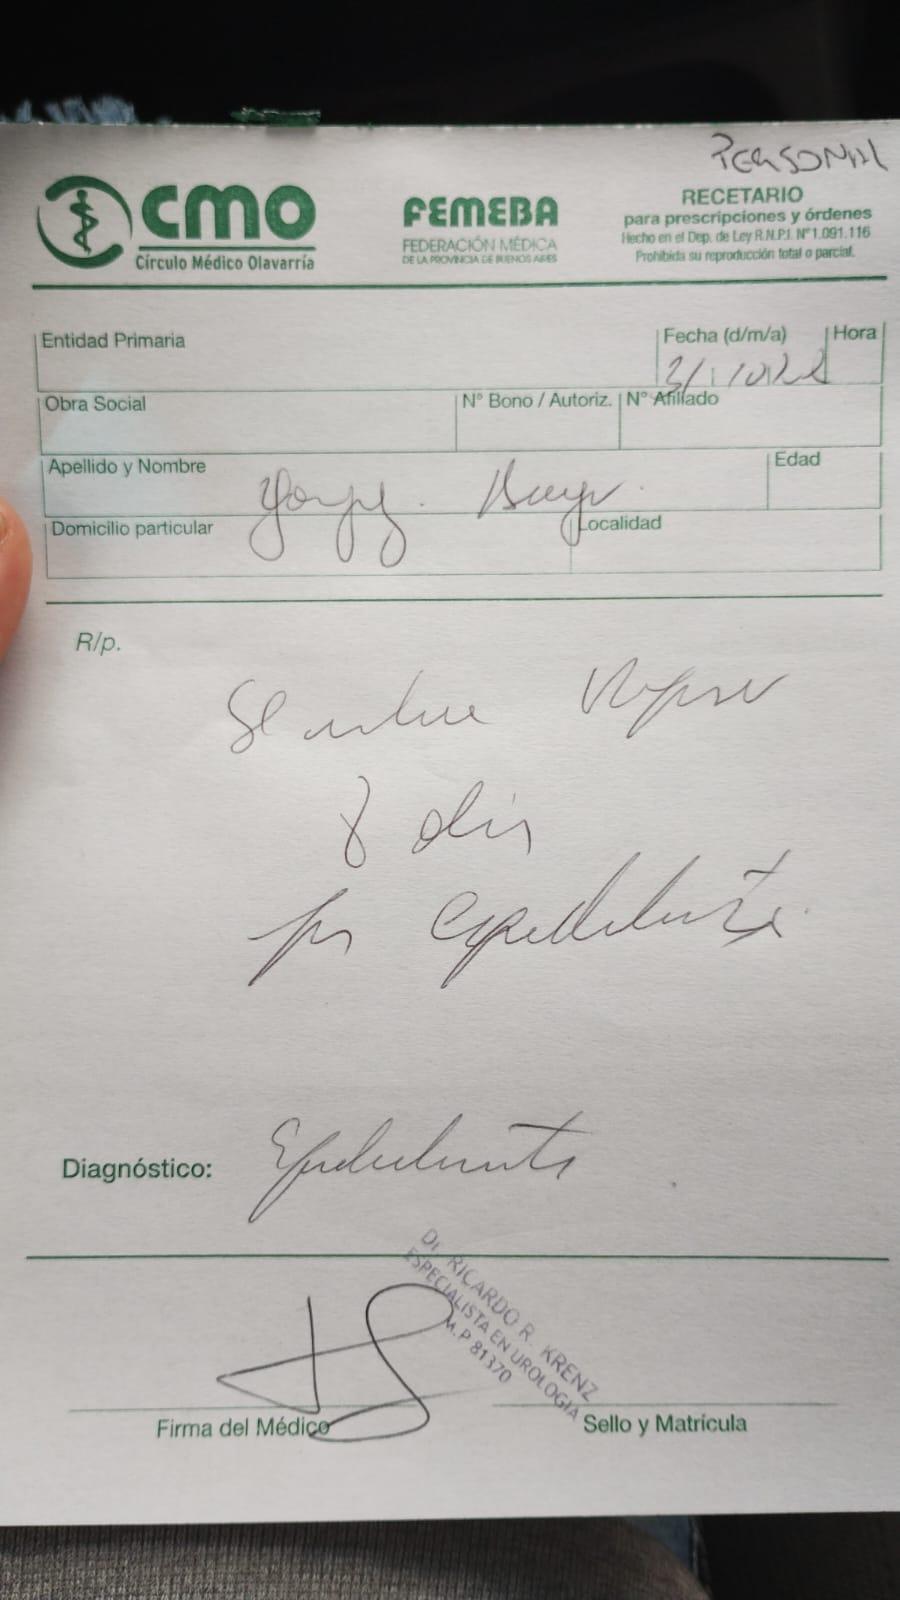 PERSONAL
CMO
Círculo Médico Olavarría
FEMEBA
FEDERACIÓN MÉDICA
DE LA PROVINCIA DE BUENOS AIRES
RECETARIO
para prescripciones y órdenes
Hecho en el Dep. de Ley R.N.P.I. Nº 1.091.116
Prohibida su reproducción total o parcial.
Entidad Primaria
Fecha (d/m/a)
Hora
Obra Social
Nº Bono / Autoriz.
Nº Afiliado
Apellido y Nombre
Edad
Domicilio particular
Localidad
R/p.
Se indica reposo
por
Diagnóstico:
Dr. RICARDO R. KRENZ
ESPECIALISTA EN UROLOGIA
M.P 81370
Firma del Médico
Sello y Matrícula